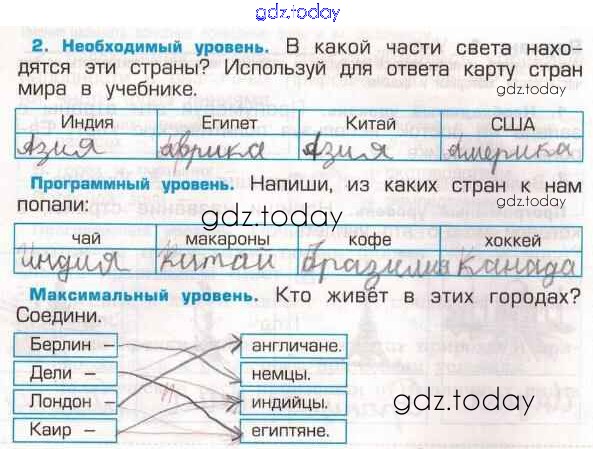 gdz.today
2. Необходимый уровень. В какой части света нахо-
дятся эти страны? Используй для ответа карту стран
мира в учебнике.
gdz.today
Индия Египет Китай США
Азия Африка Азия Америка
Программный уровень. Напиши, из каких стран к нам
попали:
gdz.today
gdz.today
чай макароны кофе хоккей
Индия Китай Бразилия Канада
Максимальный уровень. Кто живёт в этих городах?
Соедини.
Берлин – англичане.
Дели – немцы.
Лондон – индийцы.
Каир – египтяне.
gdz.today
gdz.today